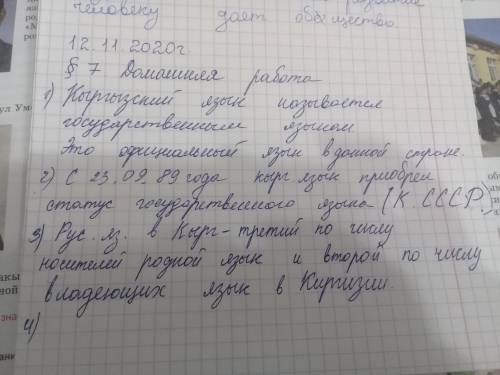 человеку дает общество.
12.11.2020г
§ 7 Домашняя работа
1) Кыргызский язык называется
государственным языком
Это официальный язык в данной стране.
2) С 23.09.89 года кырг язык приобрел
статус государственного языка (К. СССР)
3) Рус. яз. в Кырг - третий по числу
носителей родной язык и второй по числу
владеющих язык в Киргизии.
4)